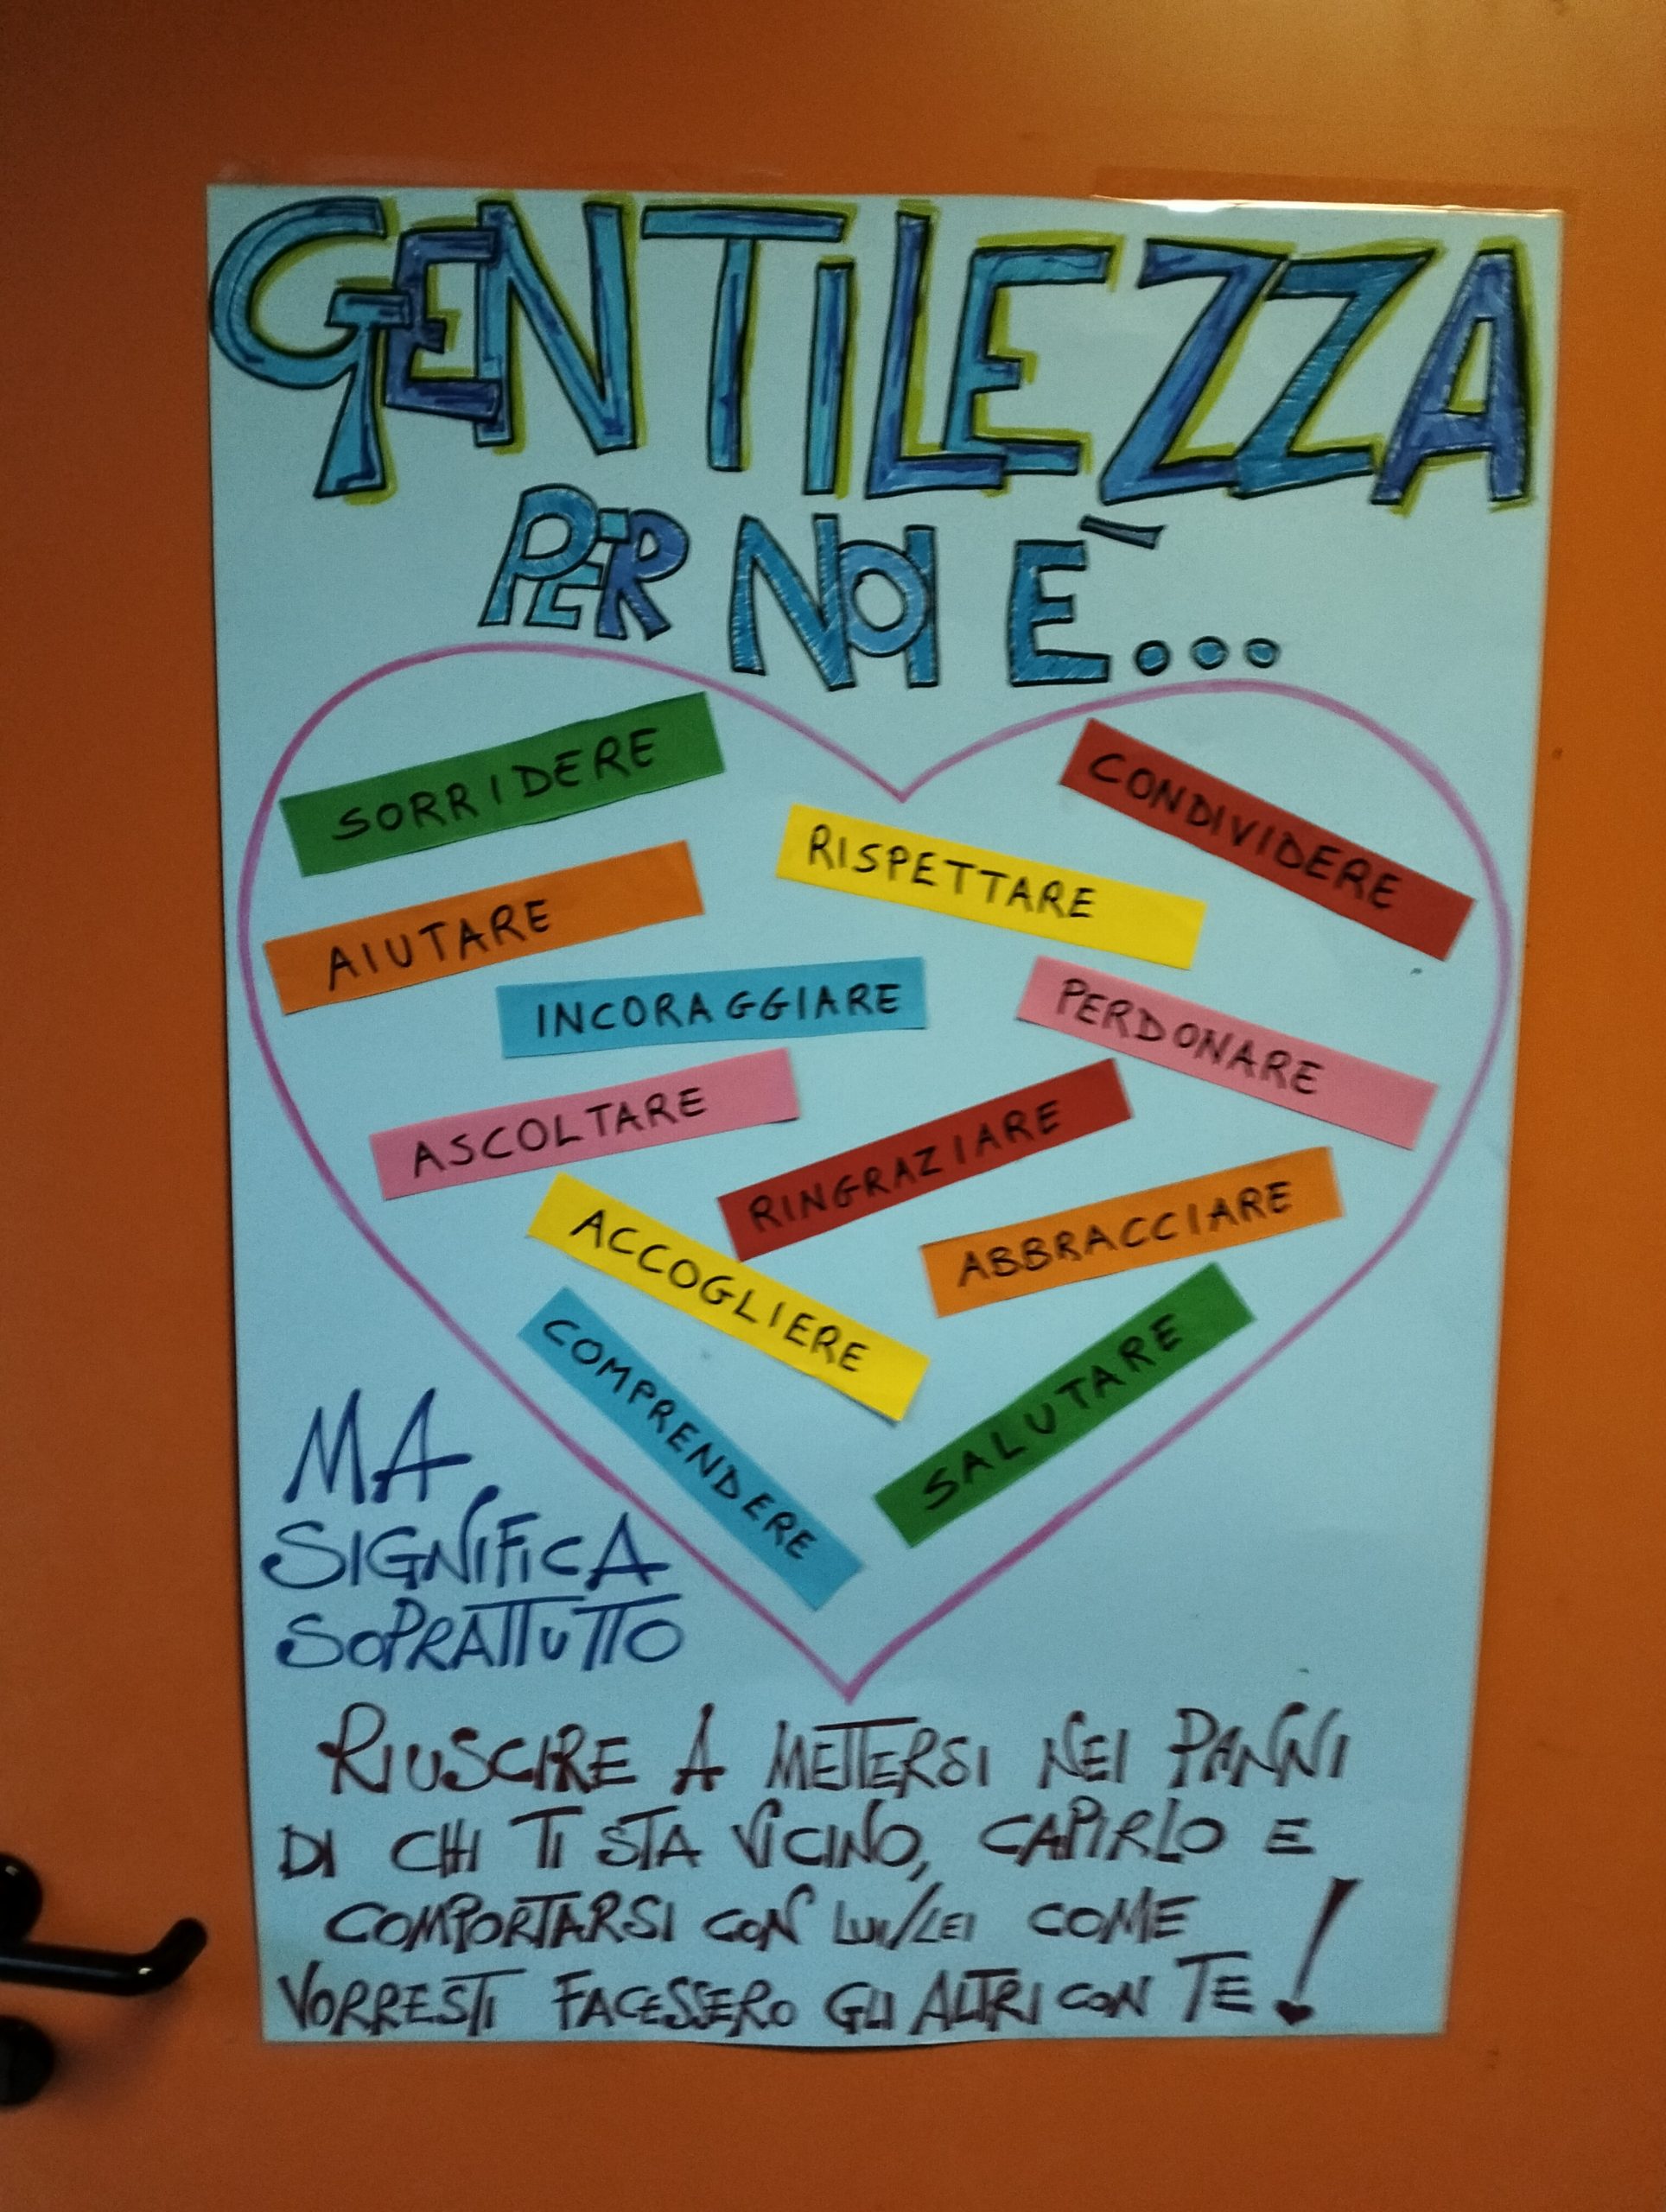 GENTILEZZA
PER NOI È...
SORRIDERE
CONDIVIDERE
RISPETTARE
AIUTARE
INCORAGGIARE
PERDONARE
ASCOLTARE
RINGRAZIARE
ABBRACCIARE
ACCOGLIERE
COMPRENDERE
SALUTARE
MA
SIGNIFICA
SOPRATTUTTO
RIUSCIRE A METTERSI NEI PANNI
DI CHI TI STA VICINO, CAPIRLO E
COMPORTARSI CON LUI/LEI COME
VORRESTI FACESSERO GLI ALTRI CON TE!